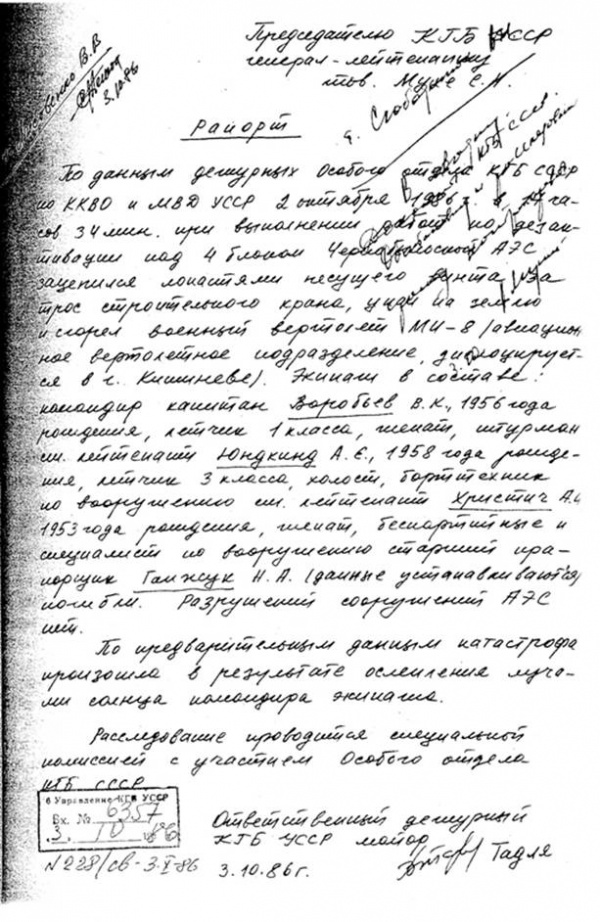 3.10.86
Председателю КГБ УССР
генерал-лейтенанту
тов. Мухе С.Н.
Рапорт
По данным дежурных Особого отдела КГБ СССР
по ККВО и МВД УССР 2 октября 1986 г. в ча-
сов 34 мин. при выполнении работ по дезак-
тивации над 4 блоком Чернобыльской АЭС
зацепился лопастями несущего винта за
трос строительного крана, упал на землю
и сгорел военный вертолет МИ-8 /авиацион-
ное вертолетное подразделение, дислоцирует-
ся в г. Кишиневе). Экипаж в составе:
командир капитан Воробьев В.К., 1956 года
рождения, летчик 1 класса, женат, штурман
ст. лейтенант Юндкинд А.Е., 1958 года рожде-
ния, летчик 3 класса, холост, бортехник
по вооружению ст. лейтенант Христич А.
1953 года рождения, женат, беспартийные и
специалист по вооружению старший пра-
порщик Ганжук Н.А. (данные устанавливаются)
погибли. Разрушений сооружений АЭС
нет.
По предварительным данным катастрофа
произошла в результате ослепления луча-
ми солнца командира экипажа.
Расследование проводится специальной
комиссией с участием Особого отдела
КГБ СССР
6 Управление КГБ УССР
Вх. № 6357
3. 10 1986
N 228/св-3.X-86
Ответственный дежурный
КГБ УССР майор
Гадля
3.10.86г.